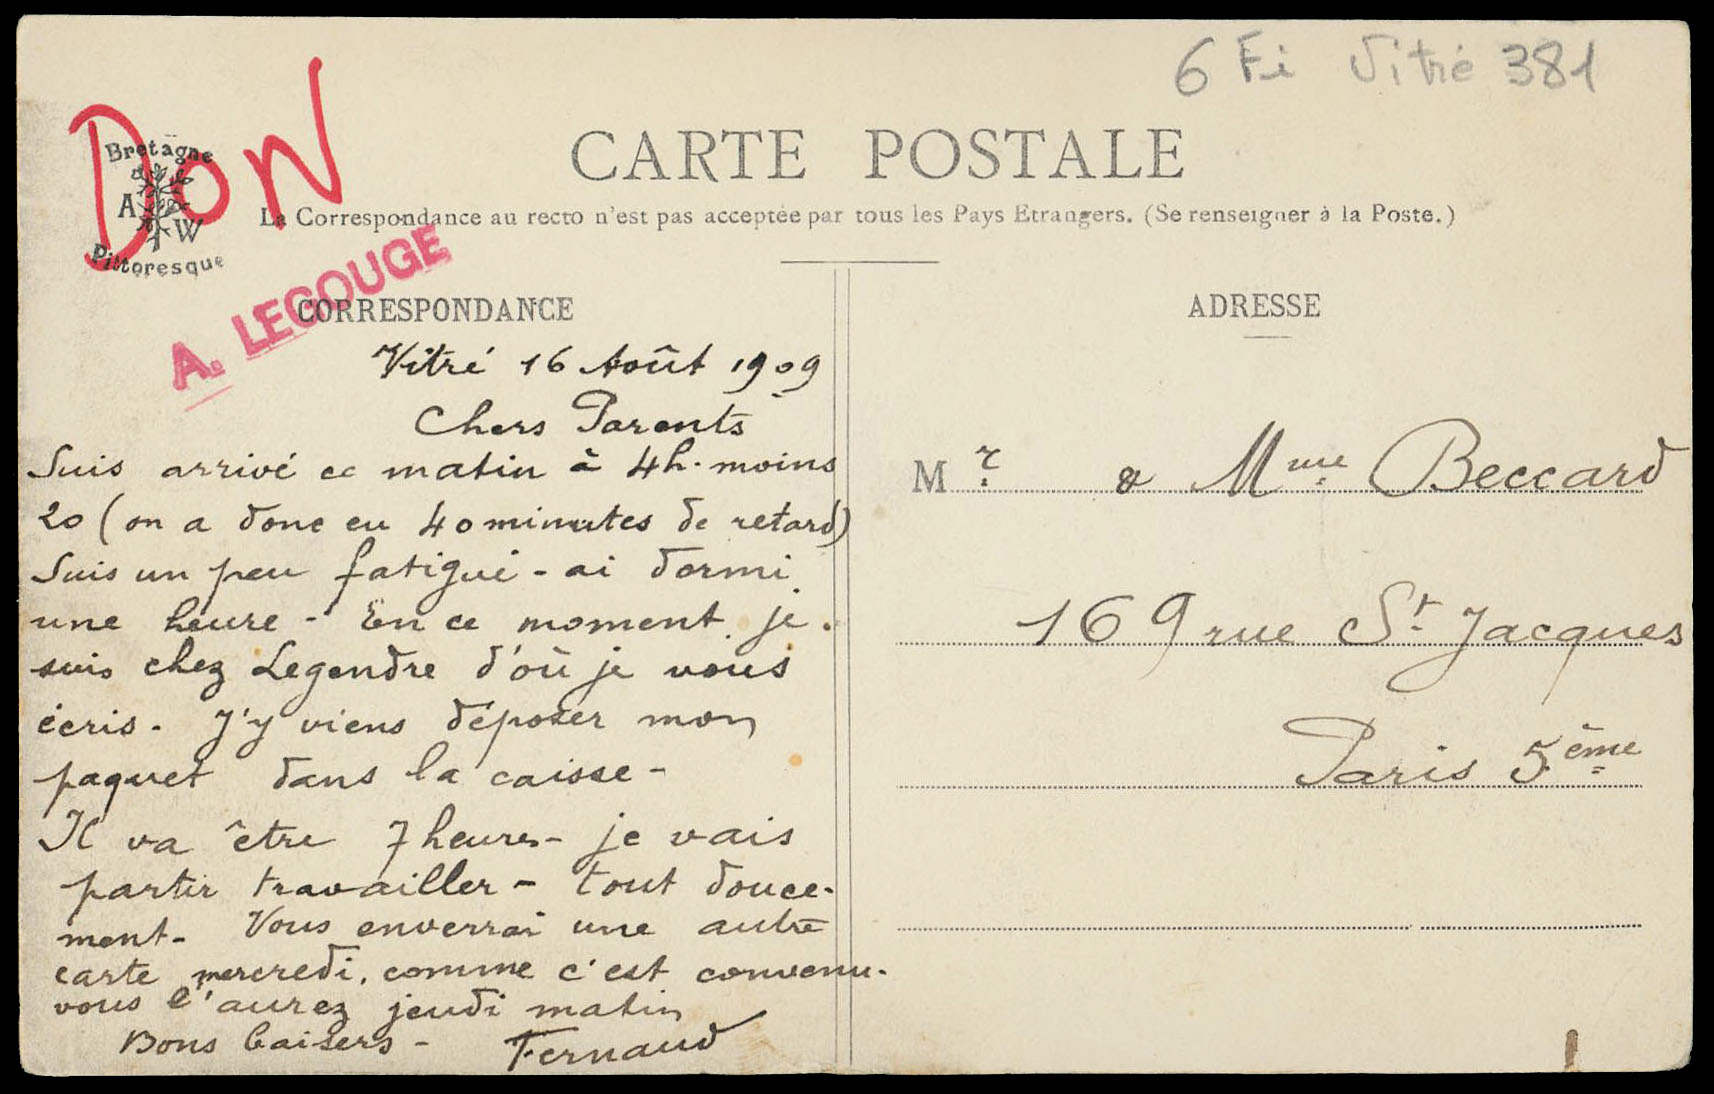 6 Fi Vitré 381
DON
Bretagne
A W
Pittoresque
CARTE POSTALE
La Correspondance au recto n'est pas acceptée par tous les Pays Etrangers. (Se renseigner à la Poste.)
A. LEGOUGE
CORRESPONDANCE
Vitré 16 Août 1909
Chers Parents
Suis arrivé ce matin à 4h. moins
20 (on a donc eu 40 minutes de retard)
Suis un peu fatigué - ai dormi
une heure - En ce moment je
suis chez Legendre d'où je vous
écris. J'y viens déposer mon
paquet dans la caisse -
Il va être 7 heures - je vais
partir travailler - tout douce-
ment - Vous enverrai une autre
carte mercredi, comme c'est convenu.
vous l'aurez jeudi matin
Bons baisers - Fernand
ADRESSE
Mr. & Mme. Beccard
169 rue St. Jacques
Paris 5ème